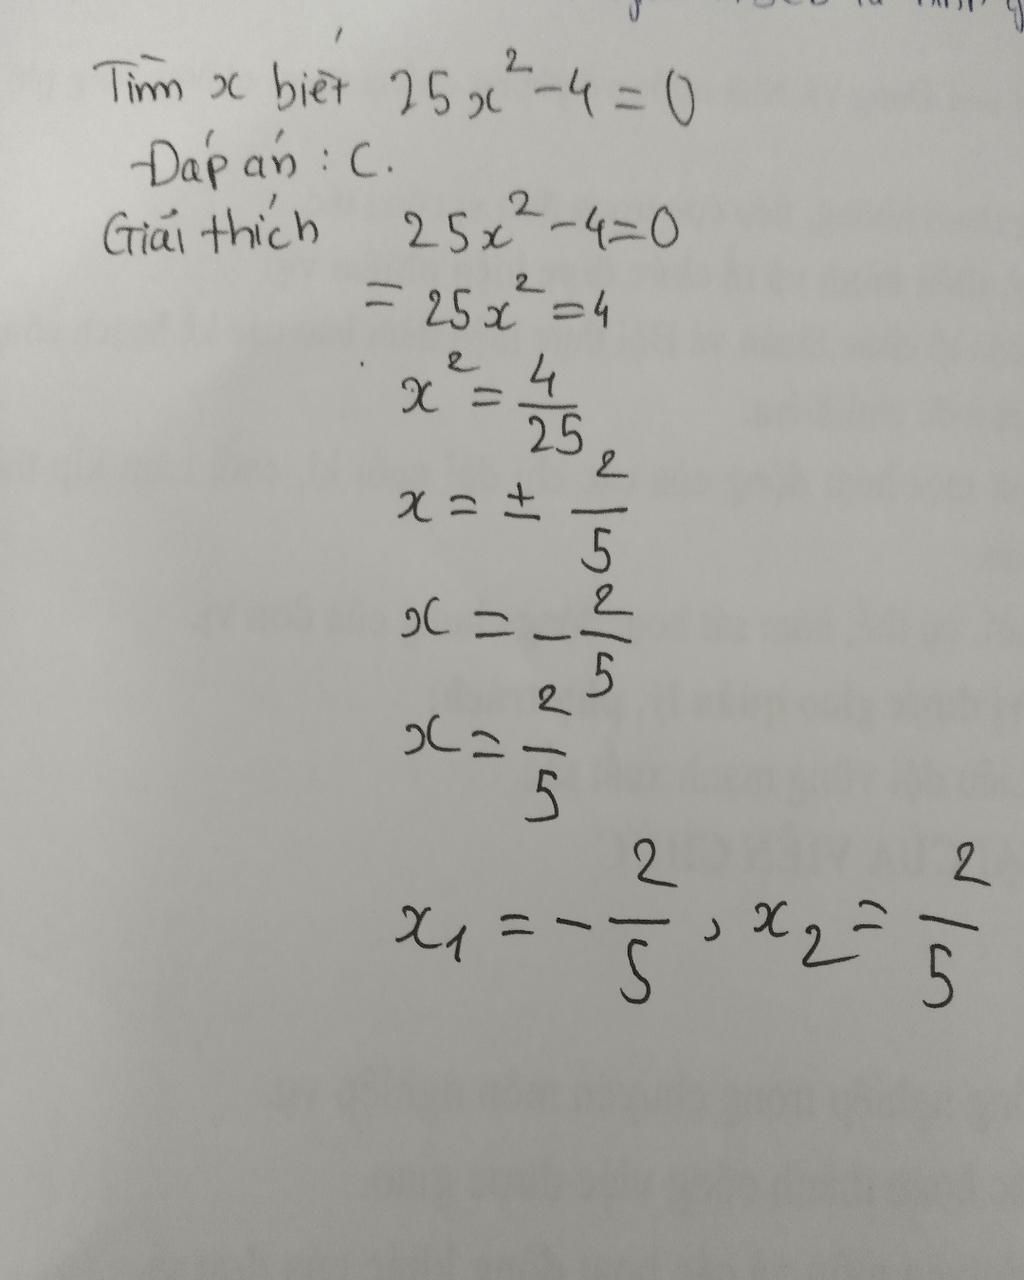 Tìm x biết 25x² - 4 = 0
Đáp án : C.
Giải thích 25x² - 4 = 0
= 25x² = 4
x² = 4/25
x = ± 2/5
x = - 2/5
x = 2/5
x₁ = - 2/5 , x₂ = 2/5